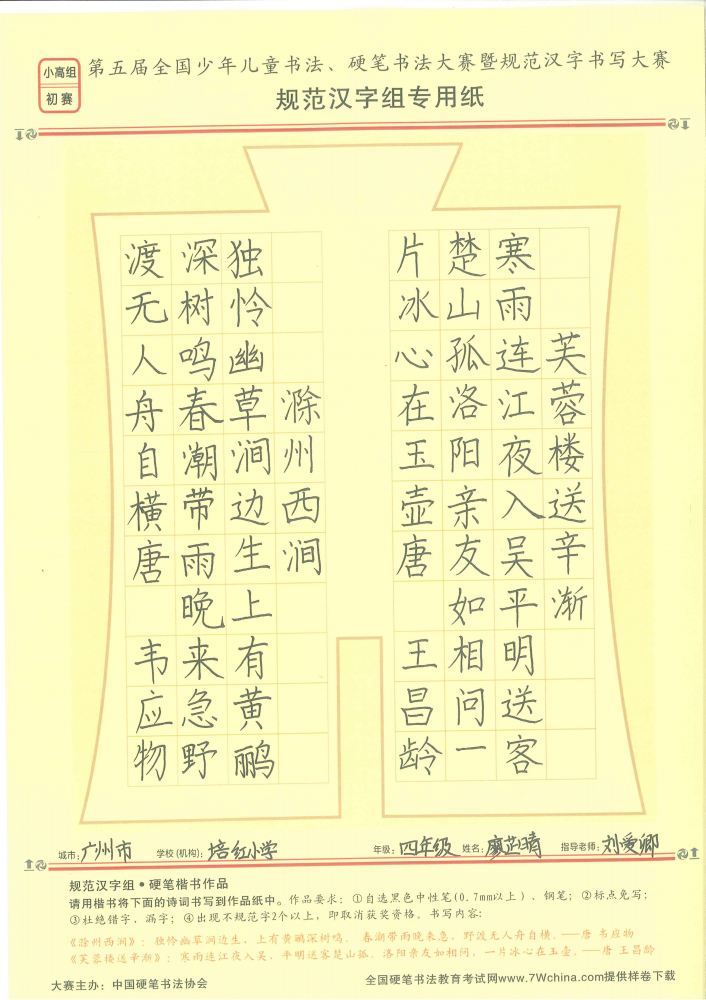 小高组
初赛
第五届全国少年儿童书法、硬笔书法大赛暨规范汉字书写大赛
规范汉字组专用纸
芙蓉楼送辛渐
寒雨连江夜入吴平明送客
楚山孤洛阳亲友如相问一
片冰心在玉壶唐 王昌龄
滁州西涧
独怜幽草涧边生上有黄鹂
深树鸣春潮带雨晚来急野
渡无人舟自横唐 韦应物
城市:广州市 学校(机构):培红小学 年级:四年级 姓名:廖芷晴 指导老师:刘爱卿
规范汉字组•硬笔楷书作品
请用楷书将下面的诗词书写到作品纸中。作品要求：①自选黑色中性笔(0.7mm以上)、钢笔；②标点免写；
③杜绝错字、漏字；④出现不规范字2个以上，即取消获奖资格。书写内容:
《滁州西涧》：独怜幽草涧边生，上有黄鹂深树鸣。 春潮带雨晚来急，野渡无人舟自横。——唐 韦应物
《芙蓉楼送辛渐》：寒雨连江夜入吴，平明送客楚山孤。洛阳亲友如相问，一片冰心在玉壶。——唐 王昌龄
大赛主办：中国硬笔书法协会 全国硬笔书法教育考试网www.7Wchina.com提供样卷下载